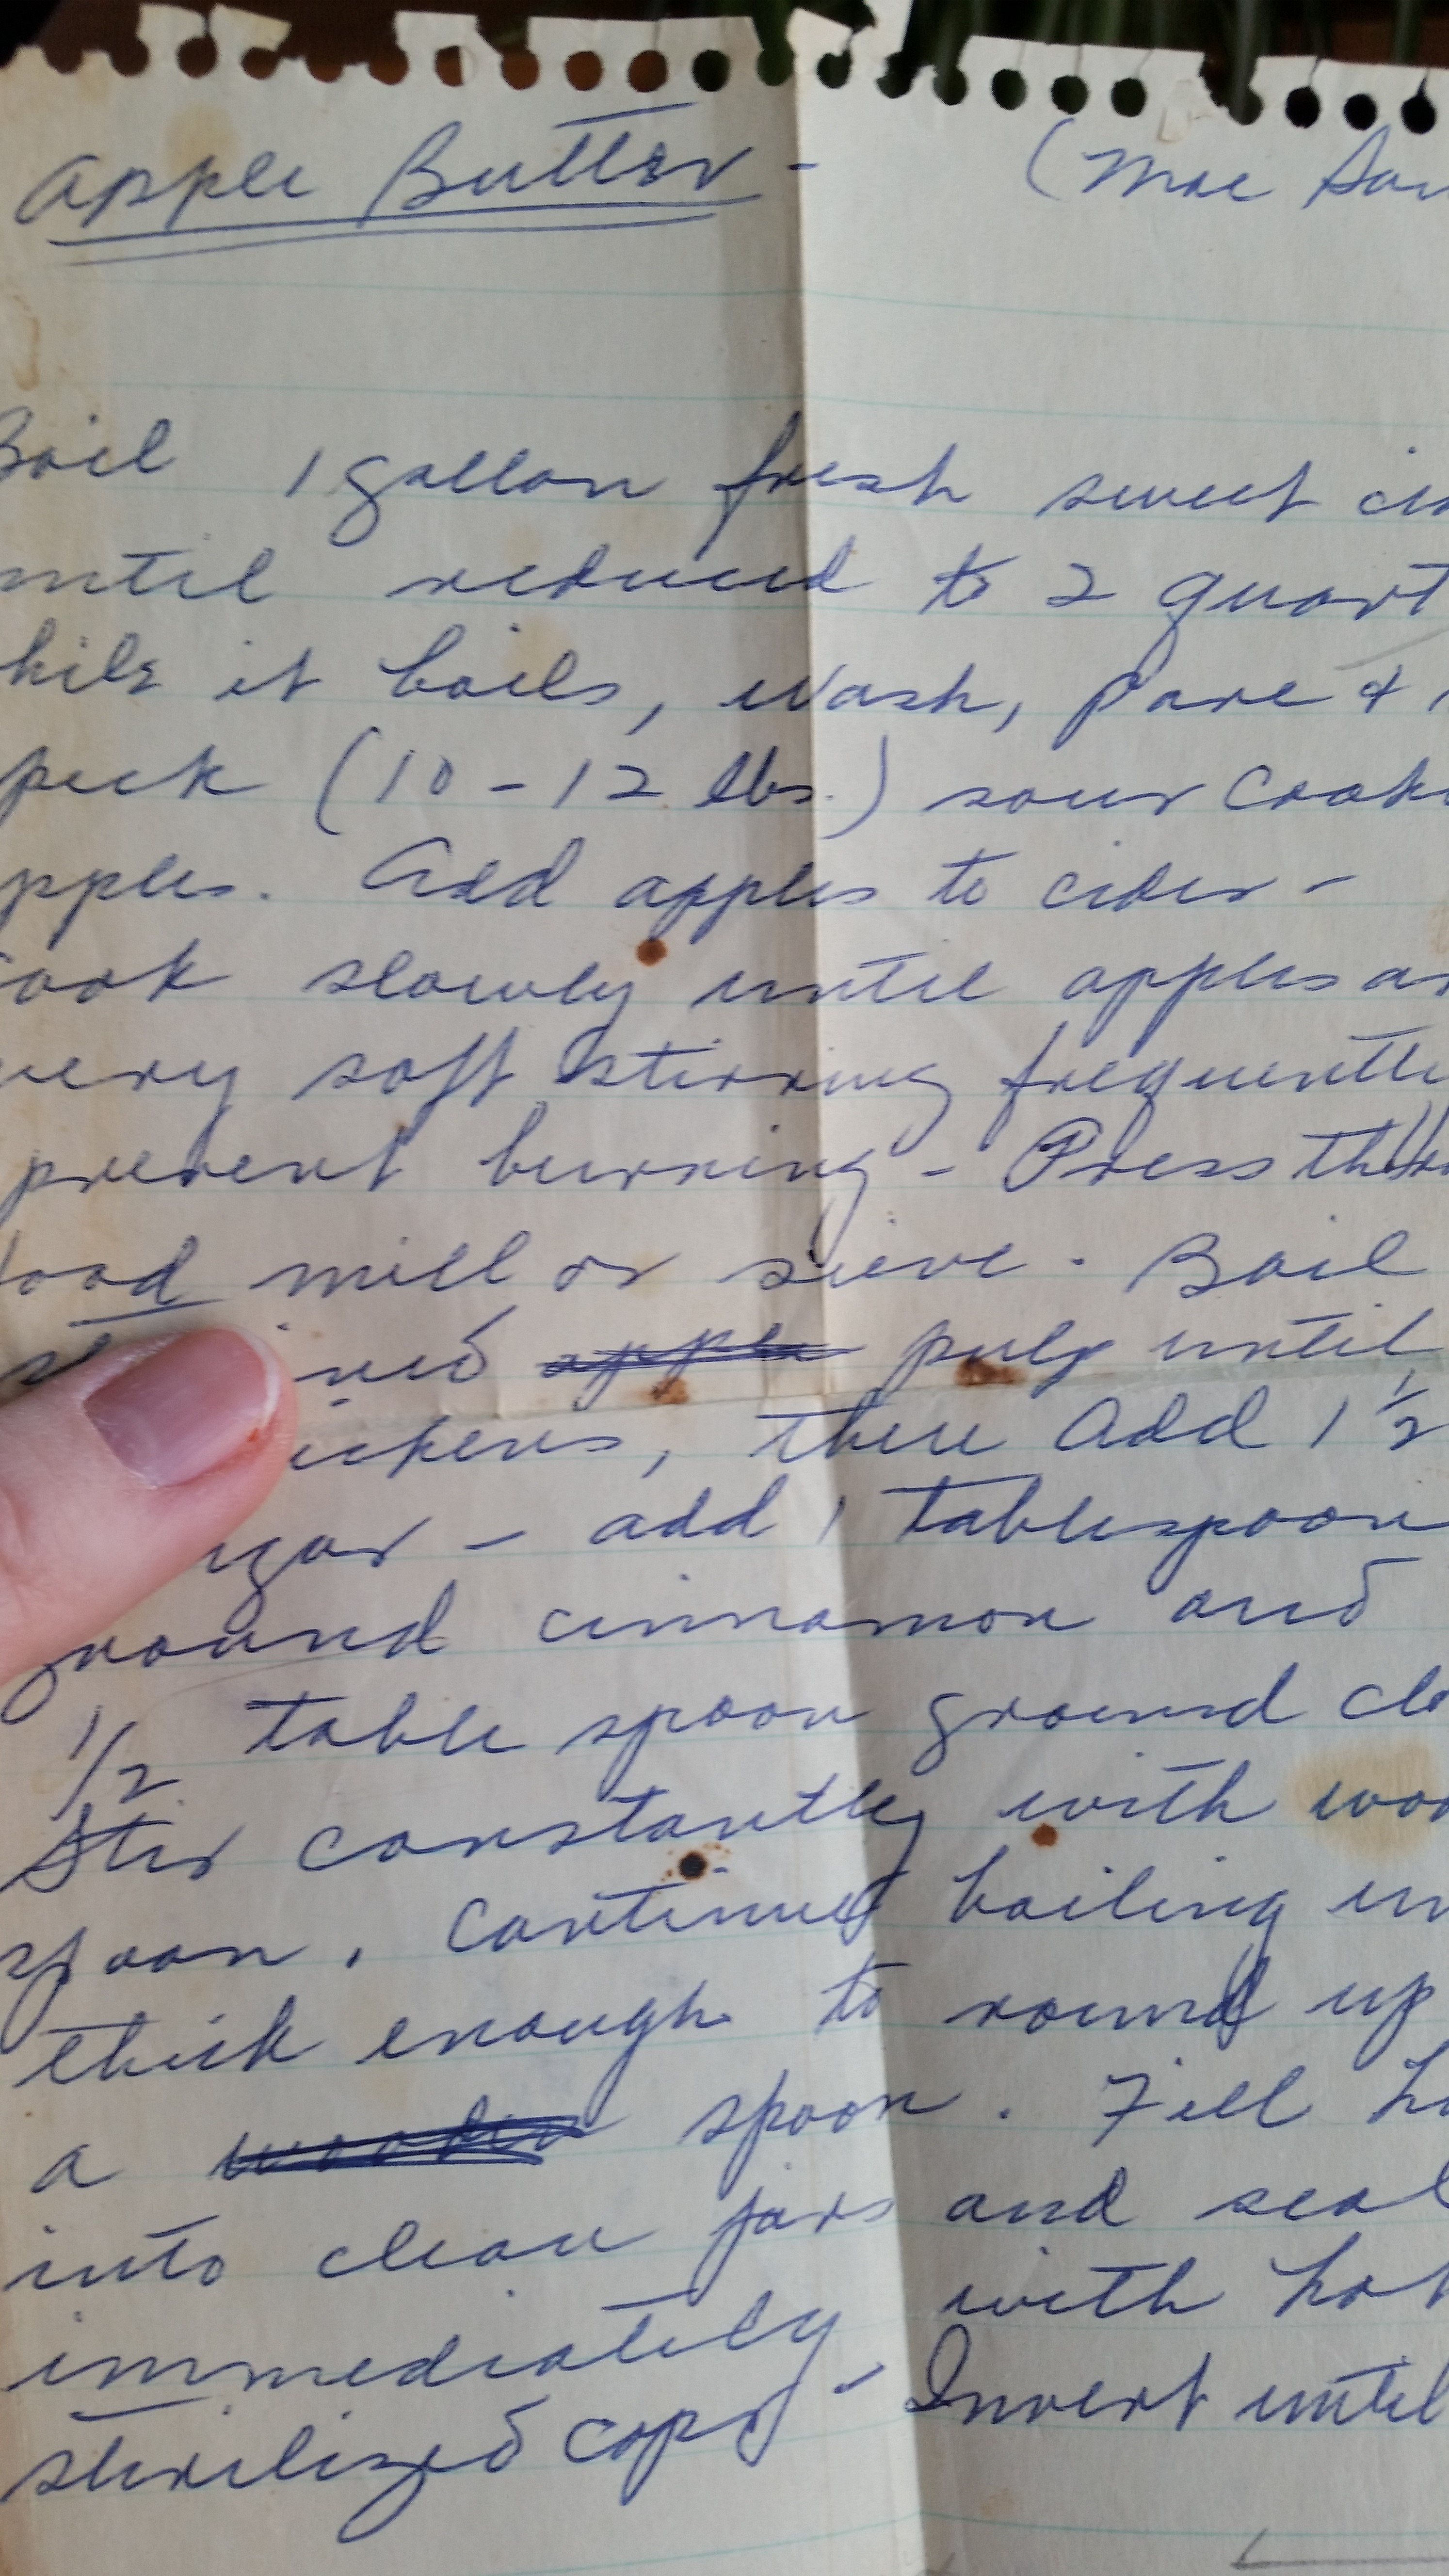 Apple Butter - (Mae
Boil 1 gallon fresh sweet
until reduced to 2 quart
hile it boils, wash, pare &
peck (10-12 lbs.) sour Cook
pples. Add apples to cider -
ook slowly until apples ar
very soft stirring frequently
prevent burning - Press
food mill or sieve. Boil
pulp until
ickens, then Add 1 1/2
ugar - add 1 tablespoon
ground cinnamon and
1/2 table spoon ground clo
Stir constantly with woo
spoon. Continue boiling un
thick enough to round up
a spoon. Fill ho
into clean jars and seal
immediately with hot
sterilized caps - Invert until